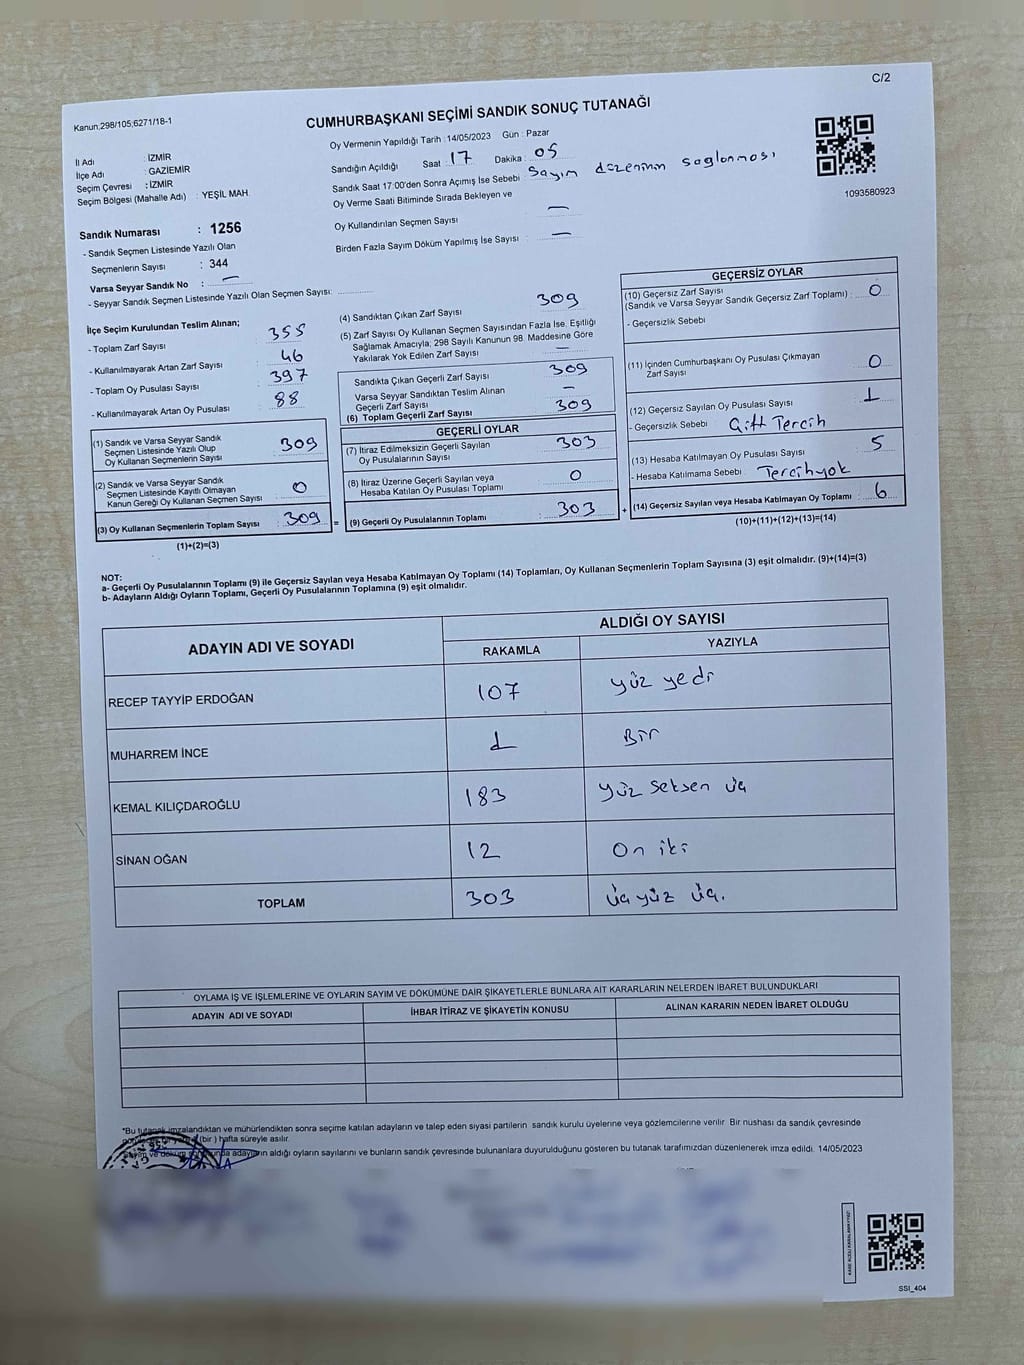 C/2
Kanun;298/105;6271/18-1
CUMHURBAŞKANI SEÇİMİ SANDIK SONUÇ TUTANAĞI
İl Adı : İZMİR
İlçe Adı : GAZİEMİR
Seçim Çevresi : İZMİR
Seçim Bölgesi (Mahalle Adı) : YEŞİL MAH.
Oy Vermenin Yapıldığı Tarih : 14/05/2023 Gün : Pazar
Sandığın Açıldığı Saat : 17 Dakika : 05
Sandık Saat 17:00'den Sonra Açımış İse Sebebi : Sayım düzeninin sağlanması
Oy Verme Saati Bitiminde Sırada Bekleyen ve
Oy Kullandırılan Seçmen Sayısı : —
Birden Fazla Sayım Döküm Yapılmış İse Sayısı : —
1093580923
Sandık Numarası : 1256
- Sandık Seçmen Listesinde Yazılı Olan
Seçmenlerin Sayısı : 344
Varsa Seyyar Sandık No : —
- Seyyar Sandık Seçmen Listesinde Yazılı Olan Seçmen Sayısı:
İlçe Seçim Kurulundan Teslim Alınan;
- Toplam Zarf Sayısı : 355
- Kullanılmayarak Artan Zarf Sayısı : 46
- Toplam Oy Pusulası Sayısı : 397
- Kullanılmayarak Artan Oy Pusulası : 88
(1) Sandık ve Varsa Seyyar Sandık
Seçmen Listesinde Yazılı Olup
Oy Kullanan Seçmenlerin Sayısı : 309
(2) Sandık ve Varsa Seyyar Sandık
Seçmen Listesinde Kayıtlı Olmayan
Kanun Gereği Oy Kullanan Seçmen Sayısı : 0
(3) Oy Kullanan Seçmenlerin Toplam Sayısı : 309
(1)+(2)=(3)
(4) Sandıktan Çıkan Zarf Sayısı 309
(5) Zarf Sayısı Oy Kullanan Seçmen Sayısından Fazla İse, Eşitliği
Sağlamak Amacıyla; 298 Sayılı Kanunun 98. Maddesine Göre
Yakılarak Yok Edilen Zarf Sayısı —
Sandıkta Çıkan Geçerli Zarf Sayısı 309
Varsa Seyyar Sandıktan Teslim Alınan
Geçerli Zarf Sayısı —
(6) Toplam Geçerli Zarf Sayısı 309
GEÇERLİ OYLAR
(7) İtiraz Edilmeksizin Geçerli Sayılan
Oy Pusulalarının Sayısı : 303
(8) İtiraz Üzerine Geçerli Sayılan veya
Hesaba Katılan Oy Pusulası Toplamı : 0
= (9) Geçerli Oy Pusulalarının Toplamı : 303
GEÇERSİZ OYLAR
(10) Geçersiz Zarf Sayısı
(Sandık ve Varsa Seyyar Sandık Geçersiz Zarf Toplamı) : 0
- Geçersizlik Sebebi
(11) İçinden Cumhurbaşkanı Oy Pusulası Çıkmayan
Zarf Sayısı : 0
(12) Geçersiz Sayılan Oy Pusulası Sayısı : 1
- Geçersizlik Sebebi Çift Tercih
(13) Hesaba Katılmayan Oy Pusulası Sayısı : 5
- Hesaba Katılmama Sebebi Tercih yok
+ (14) Geçersiz Sayılan veya Hesaba Katılmayan Oy Toplamı : 6
(10)+(11)+(12)+(13)=(14)
NOT:
a- Geçerli Oy Pusulalarının Toplamı (9) ile Geçersiz Sayılan veya Hesaba Katılmayan Oy Toplamı (14) Toplamları, Oy Kullanan Seçmenlerin Toplam Sayısına (3) eşit olmalıdır. (9)+(14)=(3)
b- Adayların Aldığı Oyların Toplamı, Geçerli Oy Pusulalarının Toplamına (9) eşit olmalıdır.
ADAYIN ADI VE SOYADI ALDIĞI OY SAYISI
RAKAMLA YAZIYLA
RECEP TAYYİP ERDOĞAN 107 yüz yedi
MUHARREM İNCE 1 Bir
KEMAL KILIÇDAROĞLU 183 yüz seksen üç
SİNAN OĞAN 12 On iki
TOPLAM 303 üçyüz üç.
OYLAMA İŞ VE İŞLEMLERİNE VE OYLARIN SAYIM VE DÖKÜMÜNE DAİR ŞİKAYETLERLE BUNLARA AİT KARARLARIN NELERDEN İBARET BULUNDUKLARI
ADAYIN ADI VE SOYADI İHBAR İTİRAZ VE ŞİKAYETİN KONUSU ALINAN KARARIN NEDEN İBARET OLDUĞU
*Bu tutanak imzalandıktan ve mühürlendikten sonra seçime katılan adayların ve talep eden siyasi partilerin sandık kurulu üyelerine veya gözlemcilerine verilir. Bir nüshası da sandık çevresinde
(bir ) hafta süreyle asılır.
Sayım ve döküm sonunda adayların aldığı oyların sayılarını ve bunların sandık çevresinde bulunanlara duyurulduğunu gösteren bu tutanak tarafımızdan düzenlenerek imza edildi. 14/05/2023
SSİ_404